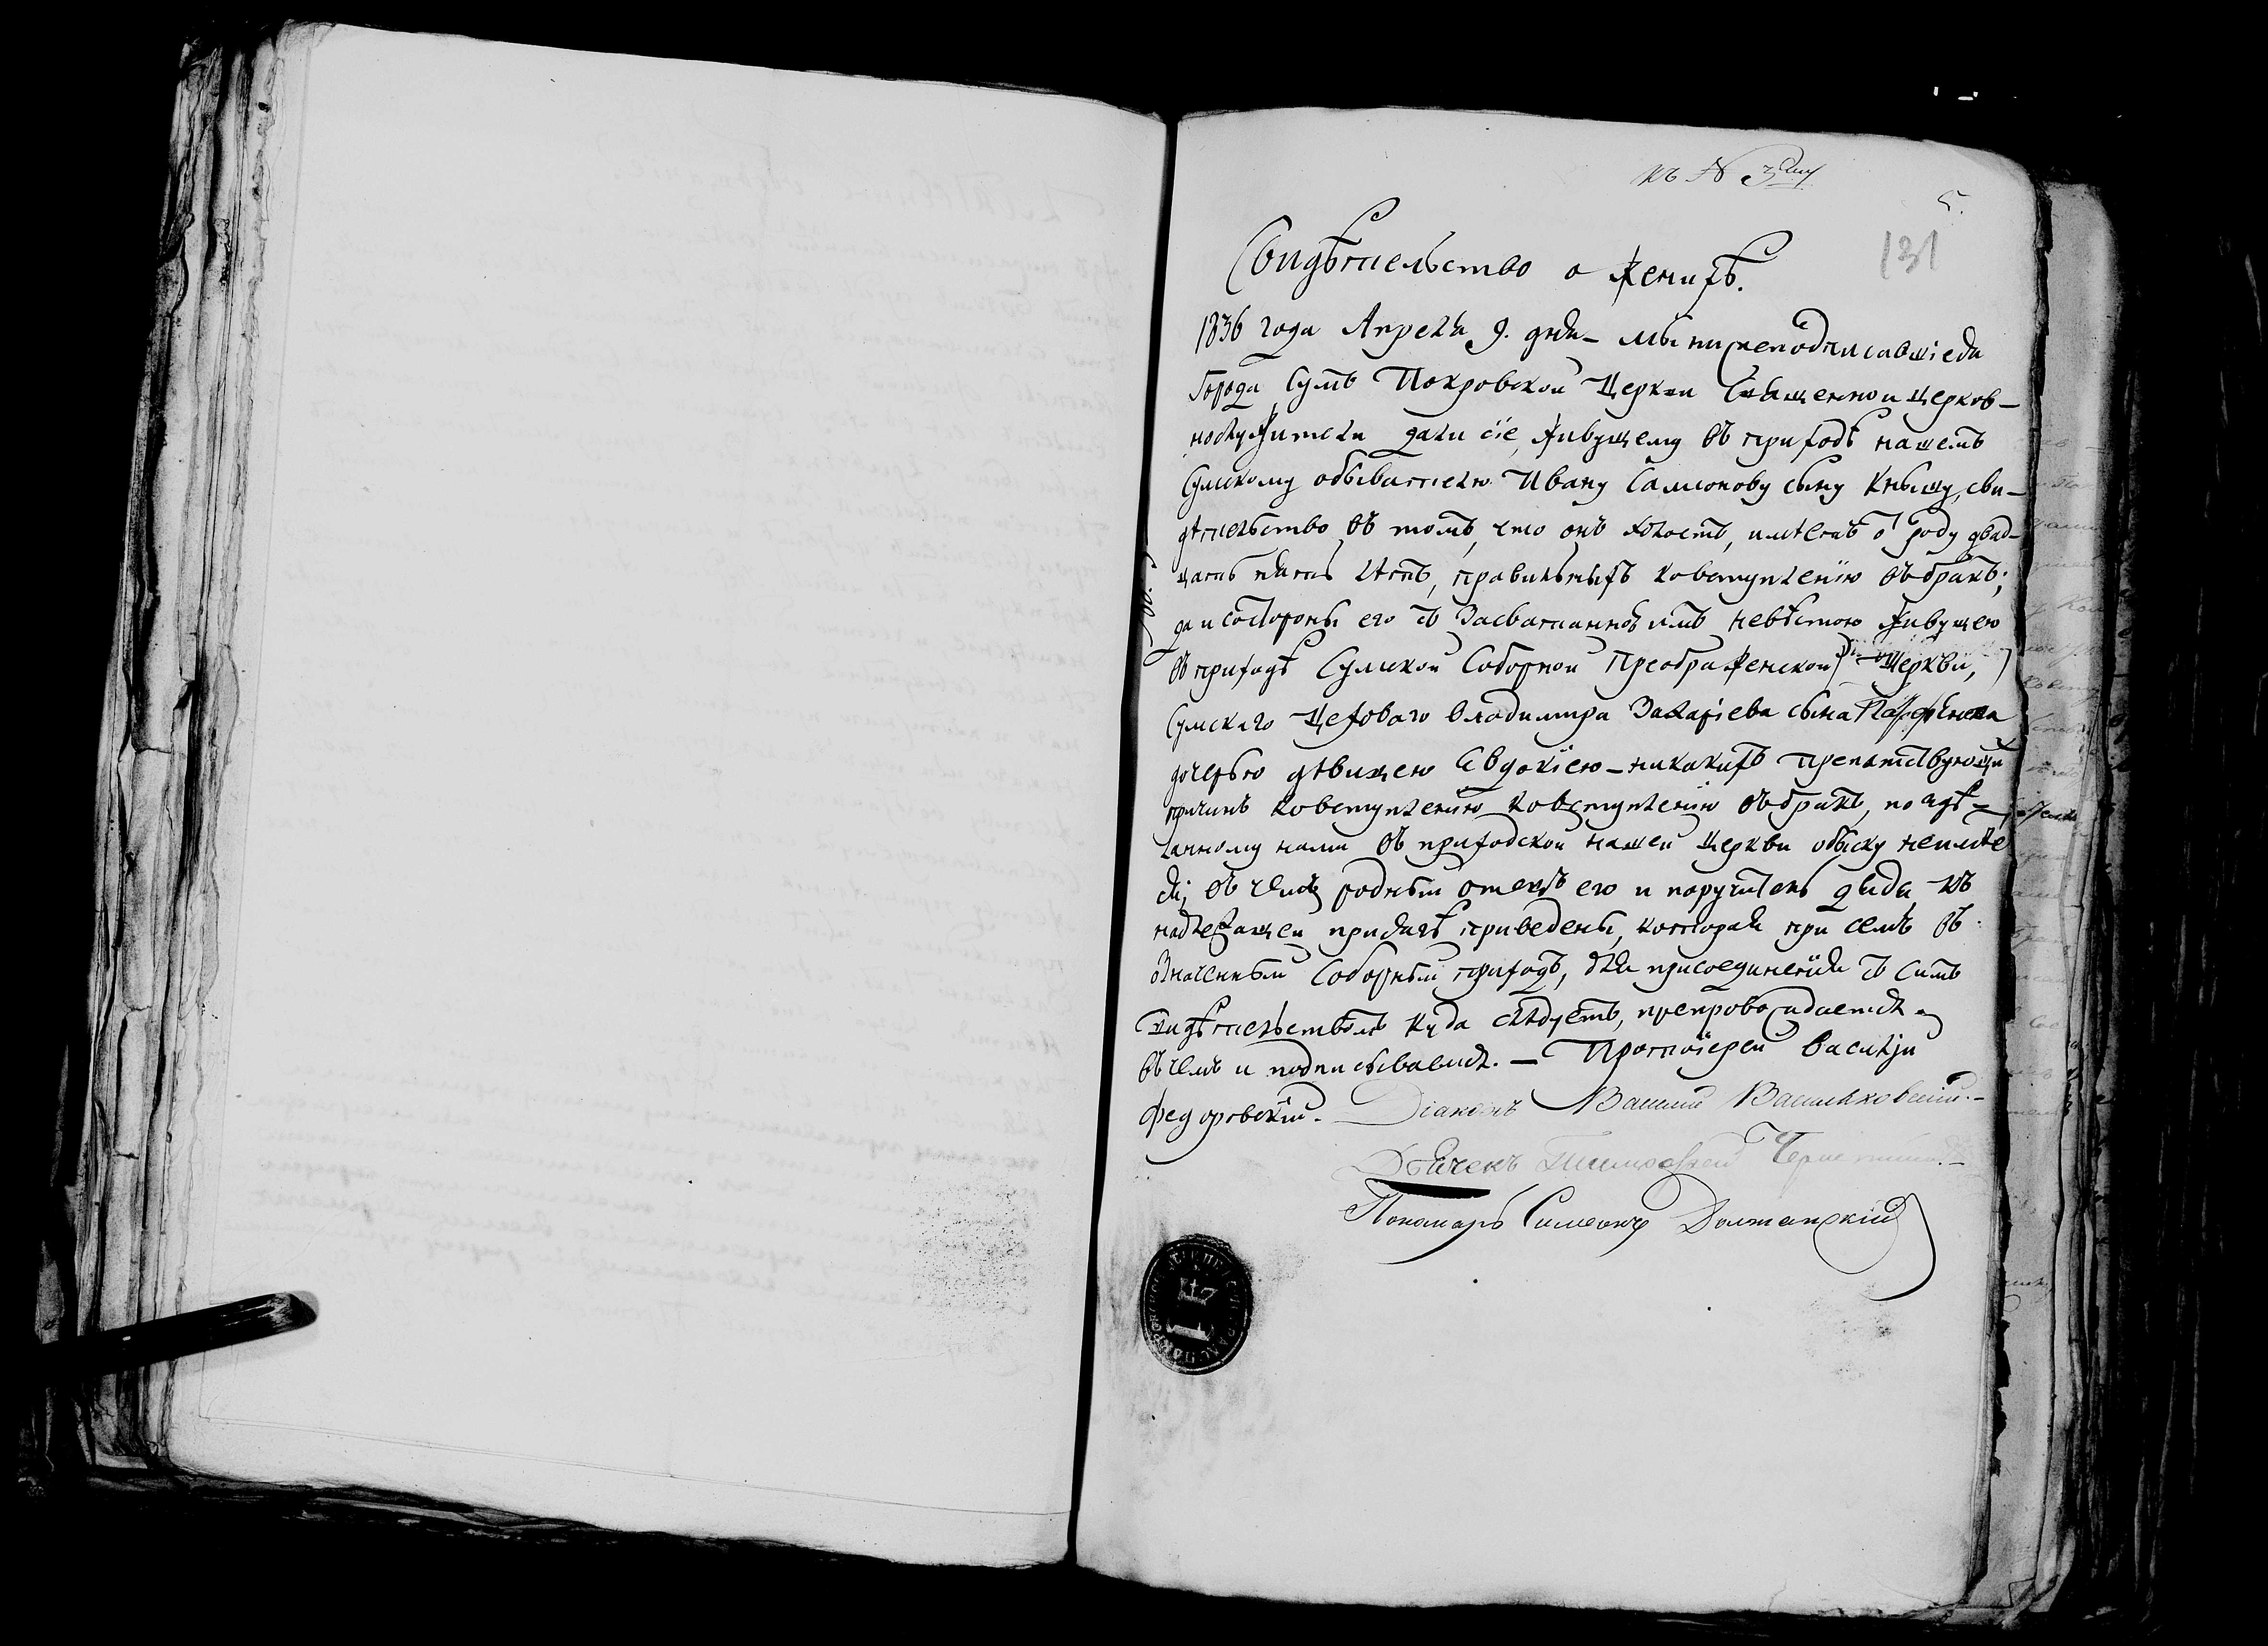 къ № 3му
5.
131
Свидѣтельство о женихѣ.
1836 года Апреля 9. дня – мы нижеподписавшіеся
Города Сумъ Покровской Церкви Священно и церков–
нослужители дали сіе, живущему въ приходѣ нашемъ
Сумскому обывателю Ивану Самсонову сыну Кнышу, сви–
дѣтельство въ томъ, что онъ холостъ, имѣетъ о роду двад–
цать пять лѣтъ, правильныхъ ковступленію въ бракъ;
да и состороны его съ Засватанною имъ невѣстою живущею
въ приходѣ Сумской Соборной Преображенской Церкви,
Сумскаго Цеховаго Владимира Захаріева сына
дочерью дѣвицею Евдокіею – никакихъ препятствующи
причинъ ковступленію ковступленію въ бракъ, по адѣ–
ланному нами въ приходской нашей Церкви обыску неимѣе
ся; въ чемъ родный отецъ его и поручитель дядя къ
надлежащей присягѣ приведены, которая при семъ въ
означенный Соборный приходъ, для присоединенія съ симъ
свидѣтельствомъ куда слѣдуетъ, препровождается
въ чемъ и подписываемся. – Протоіерей Василій
Федоровскій. Діаконъ Василій Васильковскій. –
Дьячекъ Тимофей
Пономарь Симеонъ Должанскій